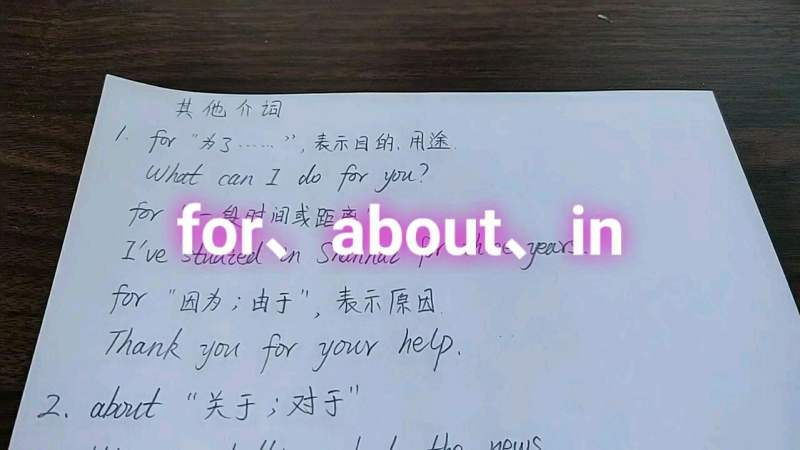 其他介词
1. for "为了……",表示目的、用途.
What can I do for you?
for "一段时间或距离"
for、about、in
I've studied in for three years.
for "因为;由于",表示原因.
Thank you for your help.
2. about "关于;对于"
the news